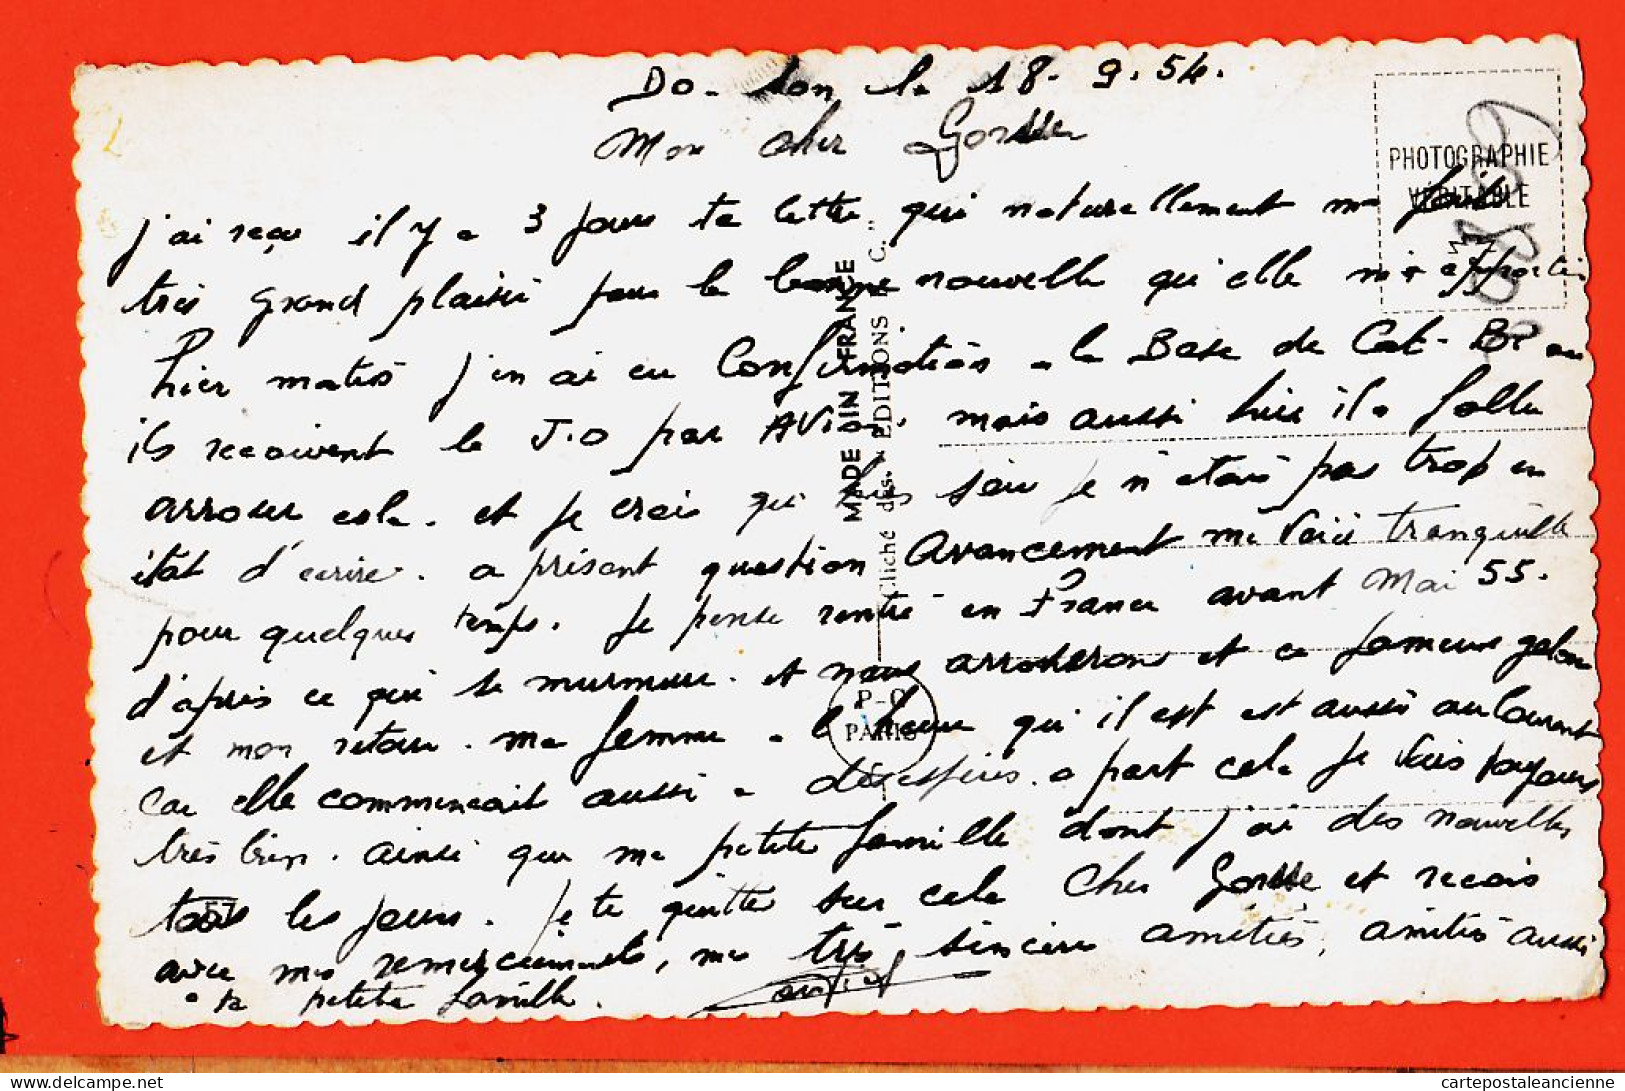 Do-Son le 18-9-54.
Mon cher
j'ai reçu il y a 3 jours ta lettre qui naturellement m'a fait
très grand plaisir pour la bonne nouvelle qu'elle m'a apportée
hier matin j'en ai eu Confirmation a la Base de Cat-Bi ou
ils recoivent le J.O par AVion. mais aussi hier il a fallu
arroser cela. et je crois que hier soir je n'etais pas trop en
état d'ecrire. a présent question avancement me voici tranquille
pour quelques temps. je pense rentré en France avant Mai 55.
d'après ce qui se murmure. et nous arroserons et ce fameux galon
et mon retour. ma femme a l'heure qu'il est est aussi au Courant
car elle commencait aussi a désespérés. a part cela je vais toujours
très bien. ainsi que ma petite famille dont j'ai des nouvelles
tous les jours. je te quitte sur cela Cher et recois
avec mes remerciements, mes très sincères amitiés, amitiés aussi
a ta petite famille.
PHOTOGRAPHIE
VÉRITABLE
MADE IN FRANCE
Cliché des EDITIONS
PARIS
delcampe.net
cartepostaleancienne